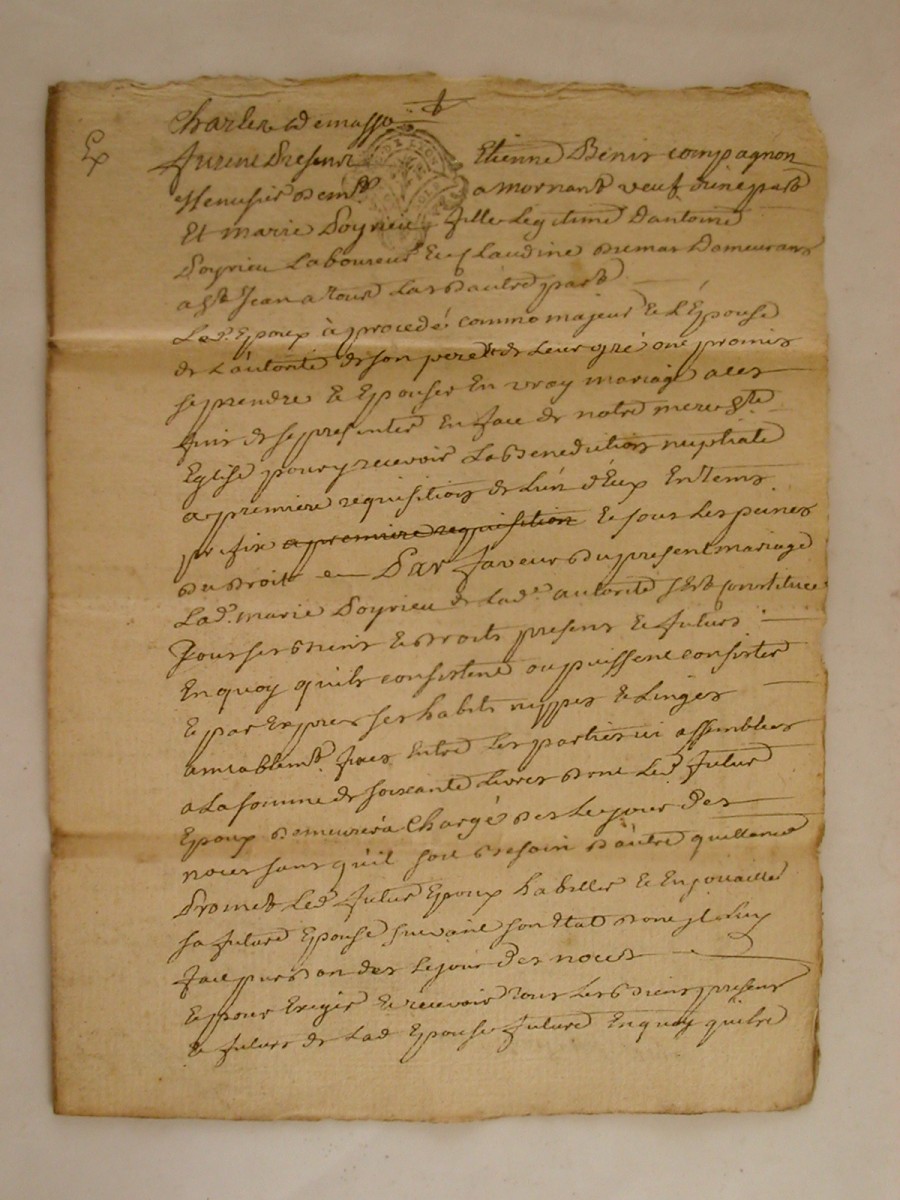 Ex
Charles Demasso
furent Presents Etienne Benir compagnon
Menusier demt a Mornant veuf d'une part
Et marie Poyrieu fille Legitime D'antoine
Poyrieu Laboureur Et Claudine Demar Demeurans
a St Jean a Tour Las D'autre part
Led. Epoux à procedé comme majeur Et L'Epouse
de L'autorité de son pere Et de Leur gré ont promis
se prendre Et Epouser En vray mariage a ces
fins de se presenter En face de notre mere Ste
Eglise pour y recevoir La Benediction nuptiale
a premiere requisition de L'un d'Eux En tems
prefix a premiere requisition Et sous Les peines
du droit Par faveur du present mariage
Lad. marie Poyrieu de Lad. autorité s'est constituee
Tous ses Biens Et droits presens Et futurs
En quoy qu'ils consistent ou puissent consister
Et par Exprès ses habits nippes Et Linges
amiablemt. fixes Entre Les parties ici assemblees
a La somme de soixante Livres dont Led. futur
Epoux demeurera Chargé des Le jour Des
noces sans qu'il soit Besoin D'autre quittance
Promet Led. futur Epoux habiller Et Enjouailler
sa future Epouse suivant son Etat Dont il Luy
fait pur don des Le jour Des noces
Et pour Exiger Et recevoir Tous Les Biens presens
Et futurs de Lad Epouse future En quoy qu'ils